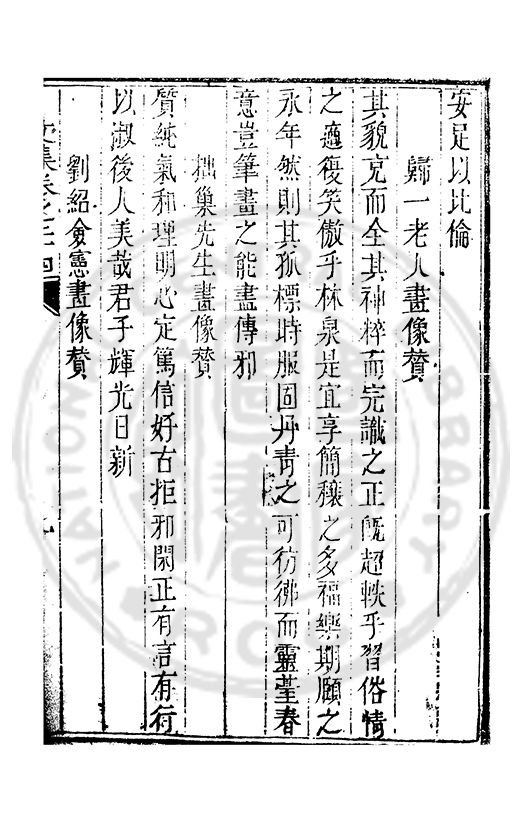 安足以比倫
歸一老人畫像贊
其貌充而全其神粹而完識之正既超軼乎習俗情
之適復笑傲乎林泉是宜享簡穰之多福樂期頤之
永年然則其孤標時服固丹青之可彷彿而靈荃春
意豈筆畫之能盡傳邪
拙巢先生畫像贊
質純氣和理明心定篤信好古拒邪閑正有言有行
以淑後人美哉君子輝光日新
劉紹僉憲畫像贊
文集卷之三十四
九